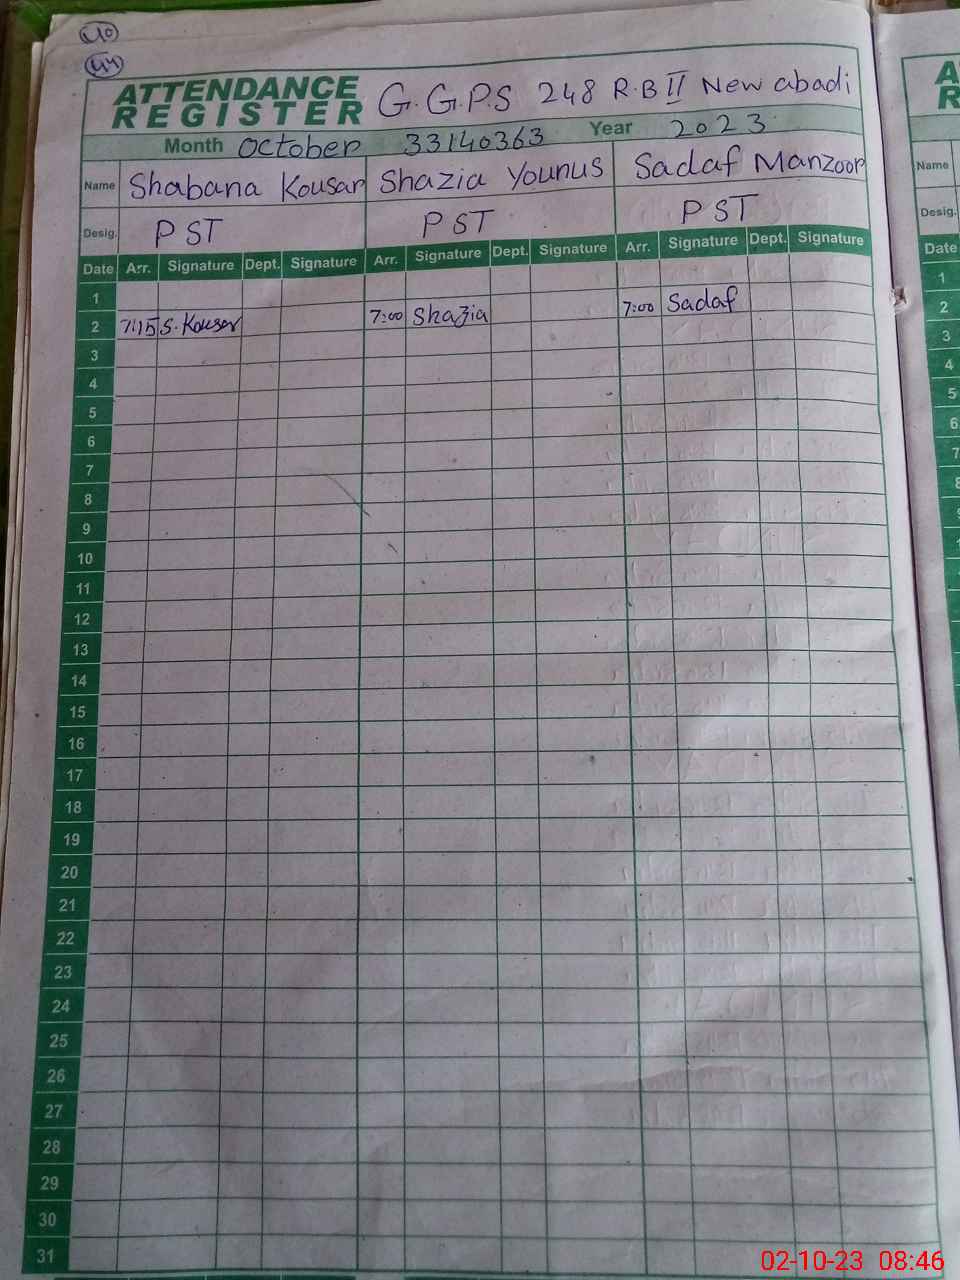 40
44
ATTENDANCE REGISTER G.G.P.S 248 R.B II New abadi
Month October 33140363 Year 2023
Name Shabana Kousar Shazia Younus Sadaf Manzoor
Desig. PST PST PST
Date Arr. Signature Dept. Signature Arr. Signature Dept. Signature Arr. Signature Dept. Signature
1
2 7:15 S. Kouser 7:00 Shazia 7:00 Sadaf
3
4
5
6
7
8
9
10
11
12
13
14
15
16
17
18
19
20
21
22
23
24
25
26
27
28
29
30
31
Name
Desig.
Date
1
2
3
4
5
6
7
02-10-23 08:46